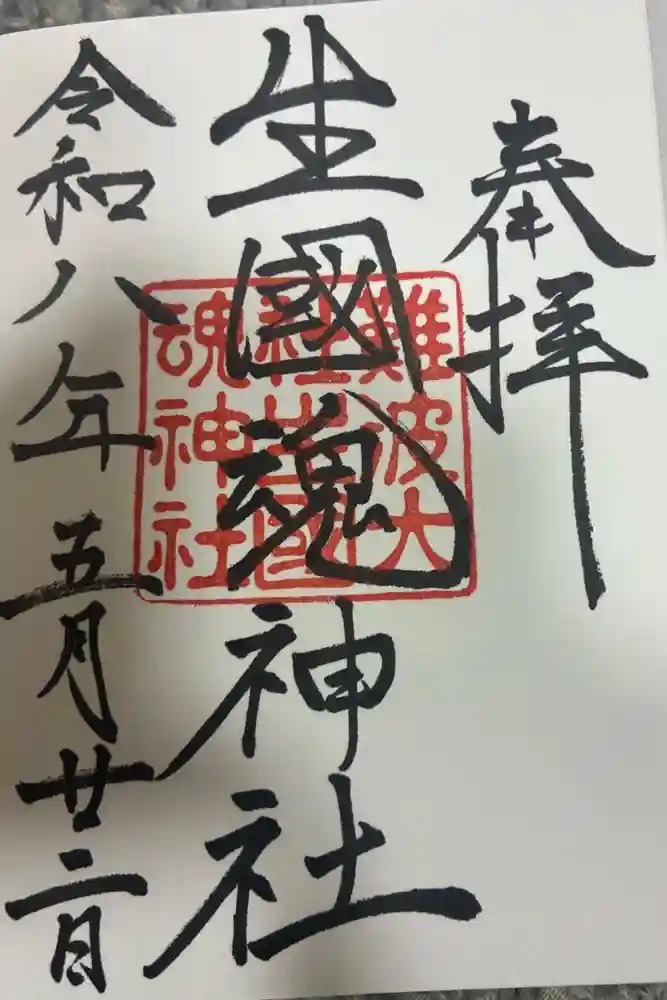 奉拝
生國魂神社
難波大
社生國
魂神社
令和八年五月廿二日